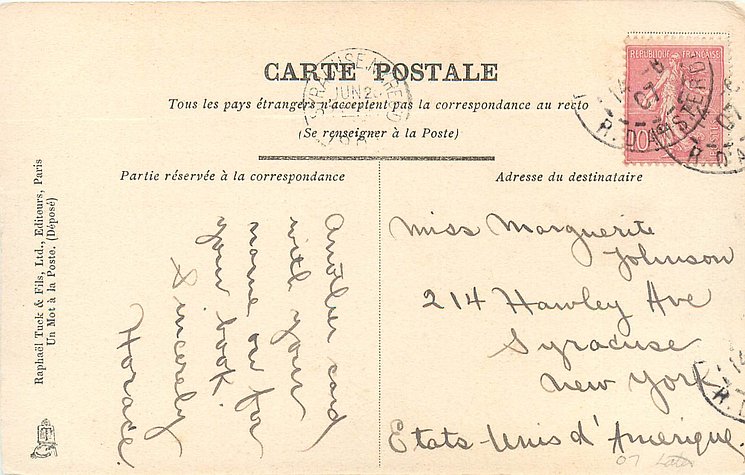 CARTE POSTALE
Tous les pays étrangers n'acceptent pas la correspondance au recto
(Se renseigner à la Poste)
Partie réservée à la correspondance
Adresse du destinataire
RÉPUBLIQUE FRANÇAISE
Raphaël Tuck & Fils, Ltd., Editeurs, Paris
Un Mot à la Poste. (Déposé)
Another card
with your
name on for
your book.
Sincerely
Horace
Miss Marguerite
Johnson
214 Hawley Ave
Syracuse
New York
Etats-Unis d'Amerique